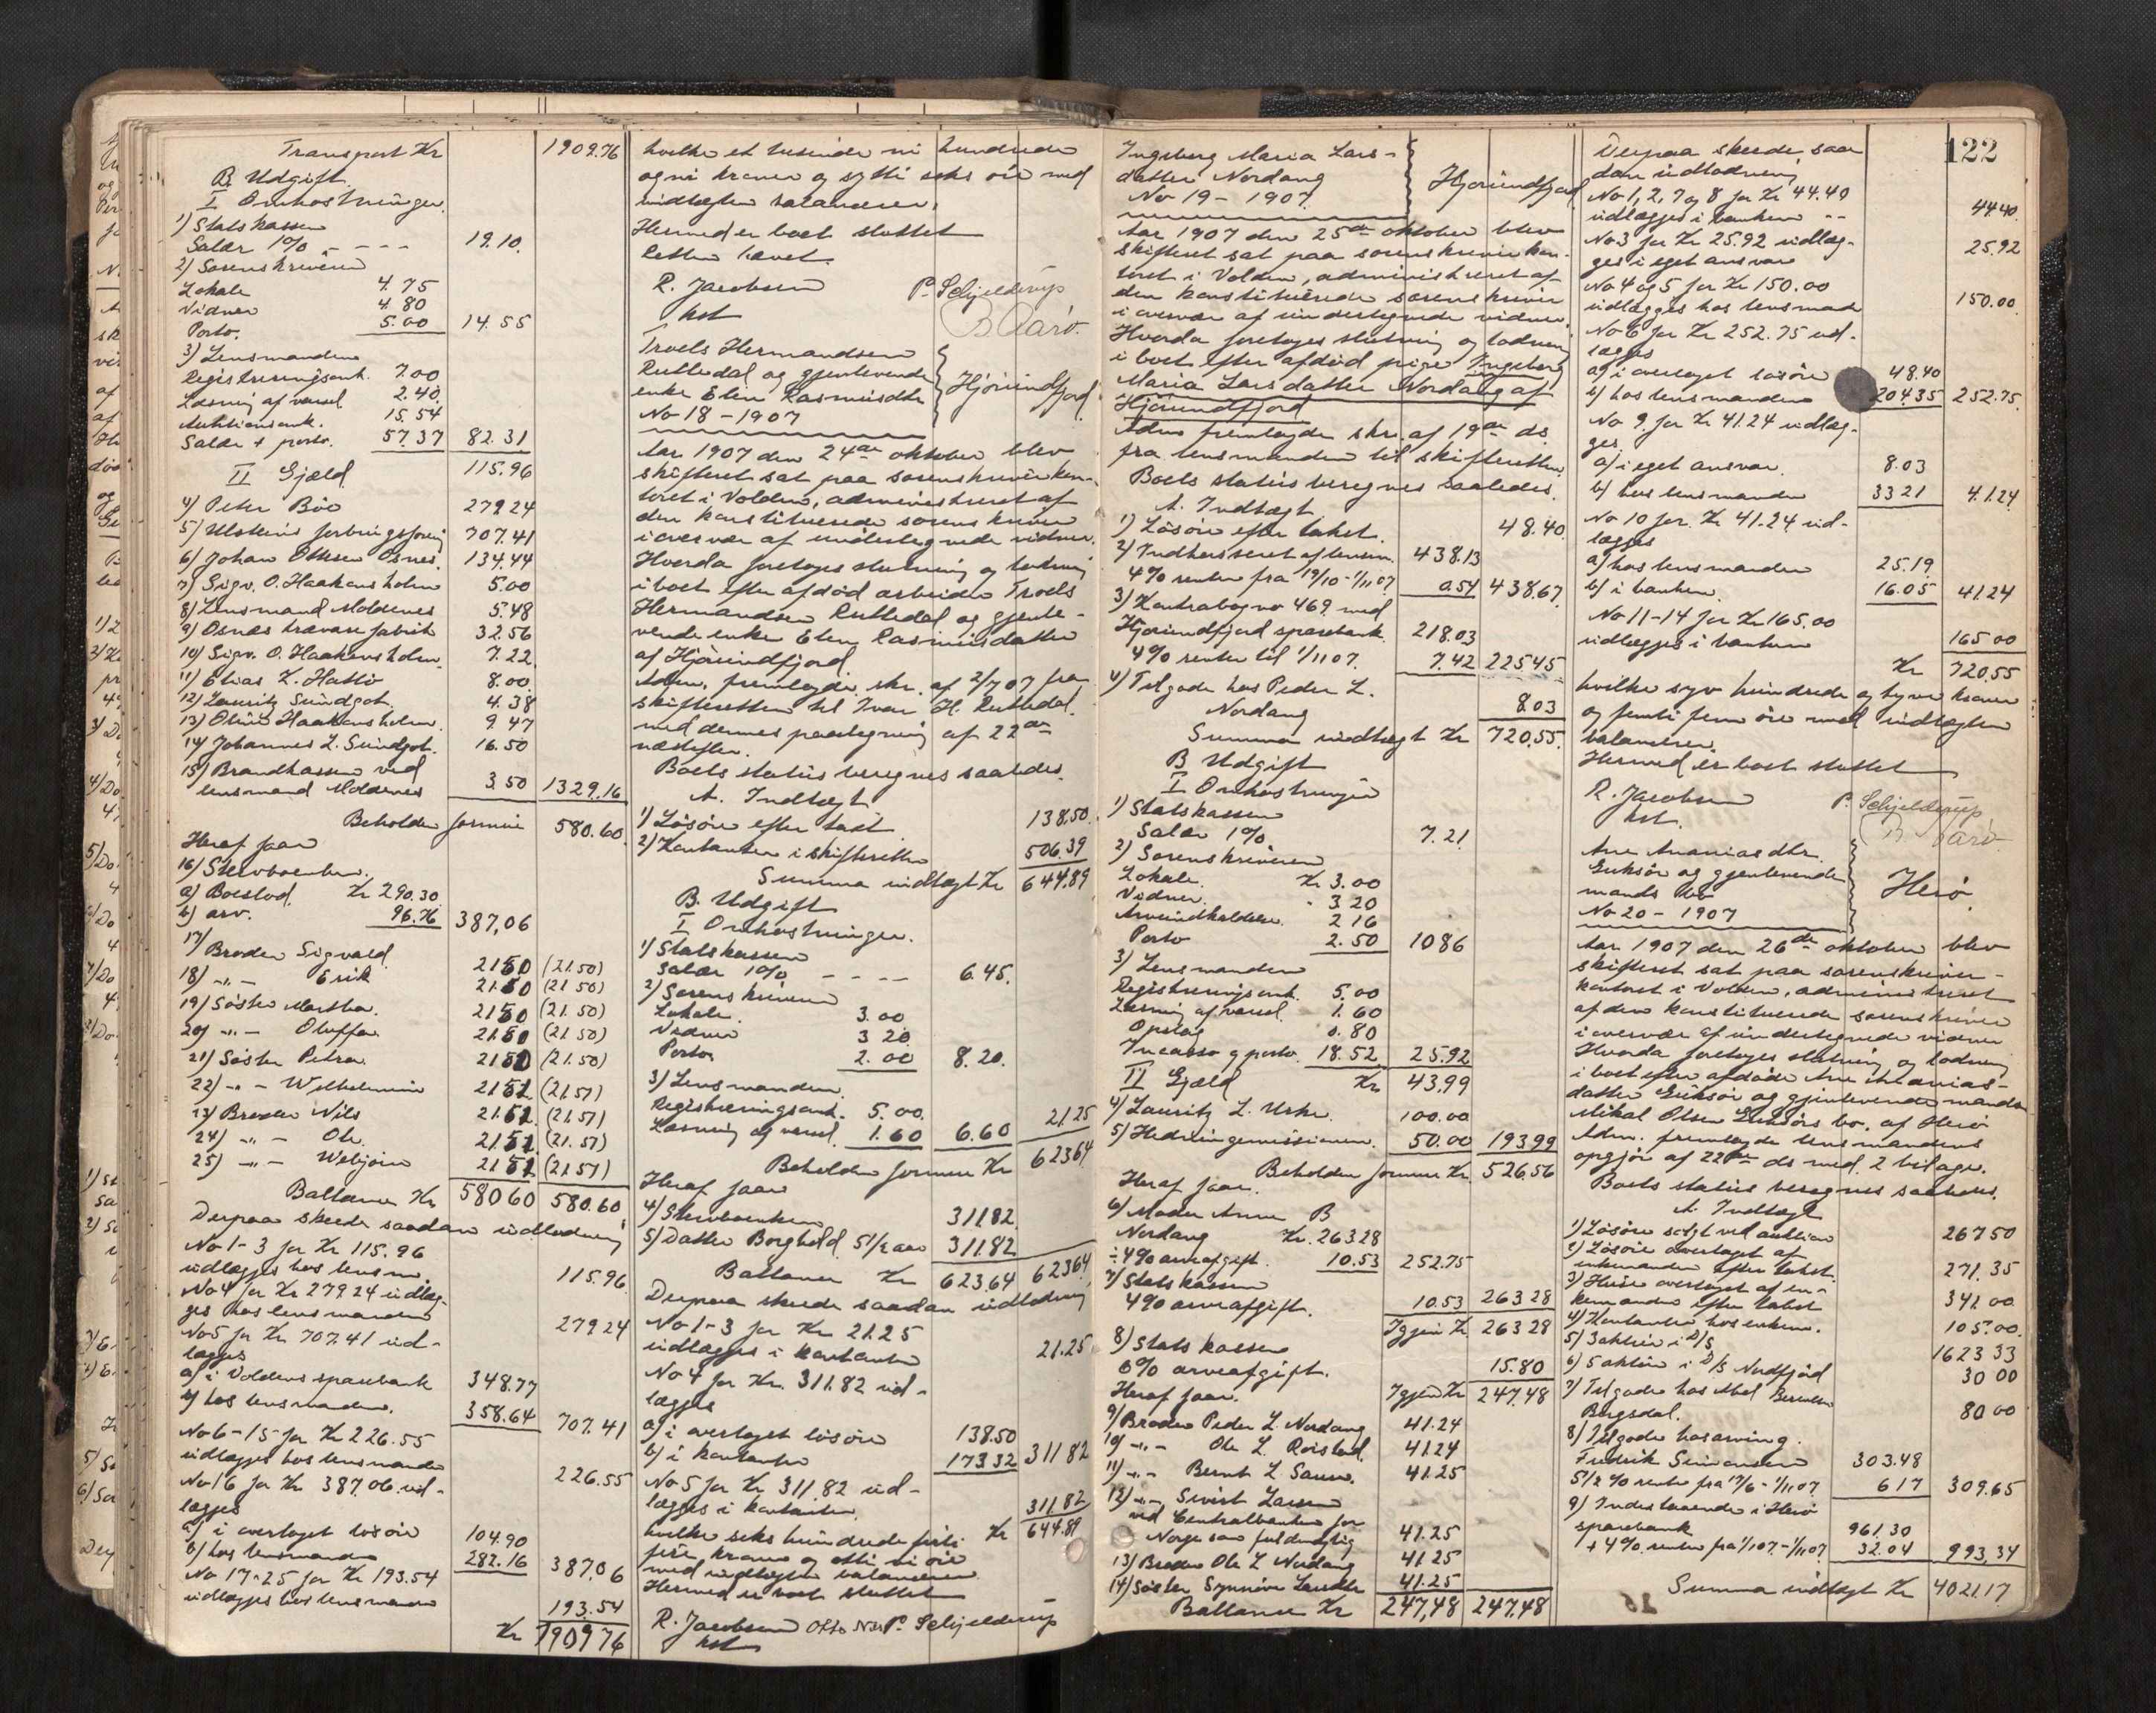 Transport Kr 1909.76
B. Udgift.
I Omkostninger.
1) Statskassen
Salær 1% - - - - 19.10.
2) Sorenskriveren
Lokale 4.75
Vidner 4.80
Porto. 5.00 14.55
3) Lensmanden
Registreringsomk. 7.00
Læsning af varsel 2.40.
Auktionsomk. 15.54
Salær + porto. 57.37 82.31
II Gjæld 115.96
4) Peter Böe 279 24
5) Ulsteins forbrugsforening 707.41
6) Johan Ottesen Osnes. 134.44
7) Sigv. O. Haakonsholm 5.00
8) Lensmand Moldenes 5.48
9) Osnæs trævarefabrik 32.56
10) Sigv. O. Haakonsholm. 7.22.
11) Elias K. Hatlö 8.00.
12) Lauritz Sundgot. 4.38
13) Oluf Haakonsholm. 9.47
14) Johannes L. Sundgot. 16.50
15) Brandkassen ved
lensmand Moldenes 3.50 1329.16
Beholden formue 580.60
Heraf faar
16) Sterboenken.
a) Boeslod. Kr 290.30.
b) arv. 96.76 387,06
17) Broder Sigvald 21 50 (21.50)
18) -"- Erik 21.50 (21 50)
19) Söster Martha. 21 50 (21.50)
20) -"- Oluffa. 21.50 (21 50)
21) Söster Petra. 21 51 (21.50)
22) -"- Wilhelmine 21 51. (21.51)
23) Broder Nils 21.51. (21.51)
24) -"- Ole. 21.51. (21.51)
25) -"- Webjörn 21 51 (21 51)
Ballance Kr 580 60 580.60
Derpaa skeede saadan udlodning
No 1-3 for Kr 115.96
udlægges hos lensm. 115.96
No 4 for Kr 279 24 udlæg-
ges hos lensmanden 279 24
No 5 for Kr 707.41 ud-
lægges
a) i Voldens sparebank 348.77
b) hos lensmanden. 358.64 707.41
No 6-15 for Kr 226.55
udlægges hos lensmanden 226.55
No 16 for Kr 387.06 ud-
lægges
a) i overtaget lösöre 104.90
b) hos lensmanden 282.16 387,06
No 17-25 for Kr 193.54
udlægges hos lensmanden 193.54
Kr 1909 76
hvilke et tusinde ni hundrede
og ni kroner og sytti seks øre med
indtægten balancerer.
Hermed er boet sluttet
Retten hævet.
R. Jacobsen P. Schjelderup
kst B. Aarö.
Troels Hermandsen
Rutledal og gjenlevende
enke Elen Rasmusdtr
No 18 - 1907
Hjörundfjord
Aar 1907 den 24de oktober blev
skifteret sat paa sorenskriverkon-
toret i Volden, administreret af
den konstituerede sorenskriver
i overvær af undertegnede vidner.
Hvorda foretoges slutning og lodning
i boet efter afdöd arbeider Troels
Hermandsen Rutledal og gjenle-
vende enke Elen Rasmusdatter
af Hjörundfjord.
Adm. fremlagde skr. af 2/7 07 fra
skifteretten til Ivar H. Rutledal.
med dennes paategning af 22de
næstefter.
Boets status beregnes saaledes.
A. Indtægt
1) Lösöre efter takst 138.50.
2) Kontanter i skifteretten 506.39
Summa indtægt Kr 644.89
B. Udgift
I Omkostninger.
1) Statskassen
Salær 1% - - - 6.45.
2) Sorenskriveren
Lokale. 3.00
Vidner 3 20.
Porto. 2.00 8.20.
3) Lensmanden.
Registreringsomk. 5.00.
Læsning af varsel. 1.60 6.60 21.25
Beholden formue Kr 623 64
Heraf faar
4) Sterboenken 311.82.
5) Datter Borghild 5 1/2 aar 311.82
Ballance Kr 623 64 623 64
Derpaa skeede saadan udlodning
No 1-3 for Kr 21.25
udlægges i kontanter 21.25
No 4 for Kr. 311.82 ud-
lægges
a) i overtaget lösöre 138.50
b) i kontanter 173 32 311 82
No 5 for Kr 311.82 ud-
lægges i kontanter. 311.82
Kr 644.89
hvilke seks hundrede förti
fire kroner og otti ni øre
med indtægten balancerer
Hermed er boet sluttet
R. Jacobsen P. Schjelderup
kst
122
Ingeborg Maria Lars-
datter Nordang
No 19 - 1907.
Hjörundfjord
Aar 1907 den 25de oktober blev
skifteret sat paa sorenskriverkon-
toret i Volden, administreret af
den konstituerede sorenskriver
i overvær af undertegnede vidner.
Hvorda foretoges slutning og lodning
i boet efter afdöd pige Ingeborg
Maria Larsdatter Nordang af
Hjörundfjord
Adm fremlagde skr. af 19de ds.
fra lensmanden til skifteretten.
Boets status beregnes saaledes.
A. Indtægt
1) Lösöre efter takst. 48.40.
2) Indkasseret af lensm. 438.13
4% renter fra 19/10 - 1/11 07 0.54 438.67.
3) Kontrabog no 469 med
Hjörundfjord sparebank. 218.03
4% renter til 1/11 07. 7.42 225 45
4) Tilgode hos Peder L.
Nordang 8.03
Summa indtægt Kr 720.55.
B Udgift
I Omkostninger
1) Statskassen
Salær 1%. 7.21.
2) Sorenskriveren
Lokale. Kr 3.00
Vidner. 3 20
Arveindkaldelse. 2 16
Porto 2.50 10 86
3) Lensmanden
Registreringsomk. 5.00
Læsning af varsel. 1.60
Opslag 0.80
Incasso g porto. 18.52 25.92
II Gjæld Kr 43.99
4) Lauritz L. Urke. 100.00
5) Hedningemissionen. 50.00 193 99
Beholden formue Kr. 526.56
Heraf faar.
6) Moder Anne B
Nordang Kr. 263 28
÷ 4% arveafgift. 10.53 252.75
7) Statskassen
4% arveafgift. 10.53 263 28
Igjen Kr 263 28
8) Statskassen
6% arveafgift. 15.80
Igjen Kr 247.48
Heraf faar.
9) Broder Peder L. Nordang 41.24
10) -"- Ole L. Roistad. 41.24
11) -"- Bernt L. Saure. 41.25
12) -"- Sivert Larsen
ved Centralbanken for
Norge som fuldmægtig 41.25
13) Broder Ole L Nordang 41.25
14) Söster Synnöve Larsdtr 41.25
Ballance Kr 247,48 247.48
Derpaa skeede saa
dan udlodning
No 1, 2, 7 og 8 for Kr 44.40
udlægges i banken - - 44 40.
No 3 for Kr 25.92 udlæg-
ges i eget ansvar 25.92
No 4 og 5 for Kr 150.00
udlægges hos lensmand 150.00.
No 6 for Kr 252.75 ud-
lægges
a) i overtaget lösöre 48.40
b) hos lensmanden 204 35 252.75.
No 9. for Kr 41.24 udlæg-
ges
a) i eget ansvar. 8.03
b) hos lensmanden 33 21 41.24
No 10 for. Kr 41.24 ud-
lægges
a) hos lensmanden 25.19.
b) i banken. 16.05 41.24
No 11-14 for Kr 165.00
udlægges i banken 165 00
Kr 720,55
hvilke syv hundrede og tyve kroner
og femti fem øre med indtægten
balancerer.
Hermed er boet sluttet
R. Jacobsen P. Schjelderup
kst. B Aarö
Ane Ananiasdtr.
Eriksör og gjenlevende
mands bo
No 20 - 1907
Herö.
Aar 1907 den 26de oktober blev
skifteret sat paa sorenskriver-
kontoret i Volden, administreret
af den konstituerede sorenskriver
i overvær af undertegnede vidner
Hvorda foretoges slutning og lodning
i boet efter afdöde Ane Ananias-
datter Eriksör og gjenlevende mands
Mikal Olsen Eriksörs bo. af Herö
Adm. fremlagde lensmandens
opgjör af 22de ds med 2 bilage.
Boets status beregnes saaledes.
A. Indtægt
1) Lösöre solgt ved auktion 267 50
2) Lösöre overtaget af
enkemanden efter takst. 271.35
3) Huse overtaget af en-
kemanden efter takst 341.00
4) Kontanter hos enkem. 105.00.
5) 3 aktier i D/S 1623 33
6) 5 aktier i D/S Nordfjord 30 00
7) Tilgode hos Abel Berntsen
Bergsdal. 80 00
8) Tilgode hos arving.
Fredrik Simonsen 303.48
5 1/2 % renter fra 17/6 - 1/11 07. 6 17 309.65
9) Indestaaende i Herö
sparebank 961.30
+ 4% renter fra 1/1 07 - 1/11 07 32.04 993,34
Summa indtægt Kr 4021.17